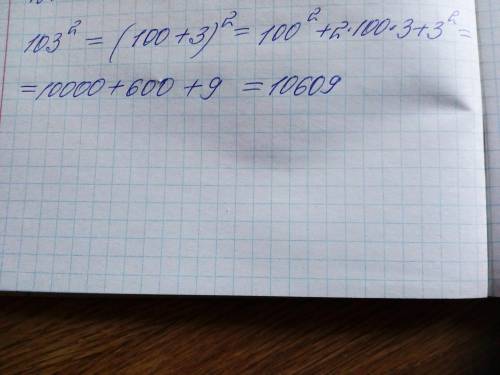 103² = (100+3)² = 100²+2·100·3+3² =
=10000+600+9 =10609